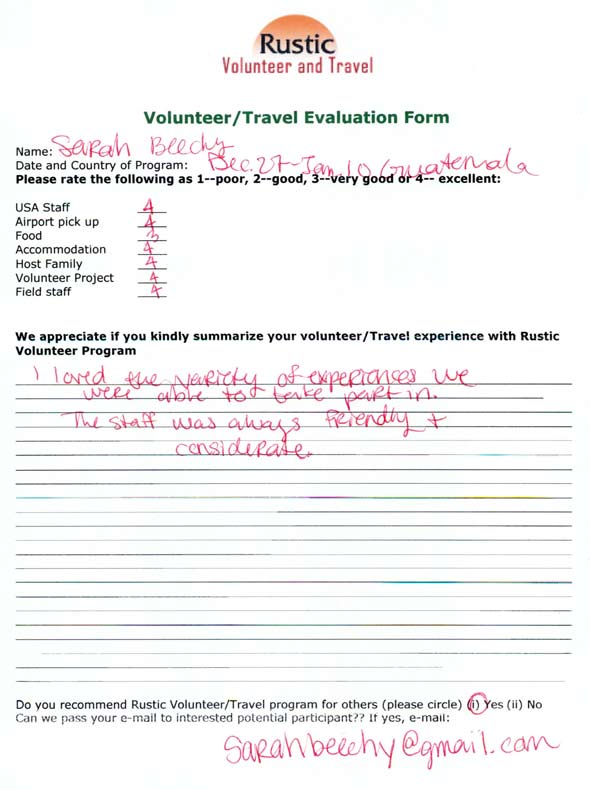 Rustic
Volunteer and Travel
Volunteer/Travel Evaluation Form
Name: Sarah Beechy
Date and Country of Program: Dec. 27-Jan. 10 Guatemala
Please rate the following as 1--poor, 2--good, 3--very good or 4-- excellent:
USA Staff 4
Airport pick up 4
Food 3
Accommodation 4
Host Family 4
Volunteer Project 4
Field staff 4
We appreciate if you kindly summarize your volunteer/Travel experience with Rustic
Volunteer Program
I loved the variety of experiences we
were able to take part in.
The staff was always friendly +
considerate.
Do you recommend Rustic Volunteer/Travel program for others (please circle) (i) Yes (ii) No
Can we pass your e-mail to interested potential participant?? If yes, e-mail:
sarahbeechy@gmail.com